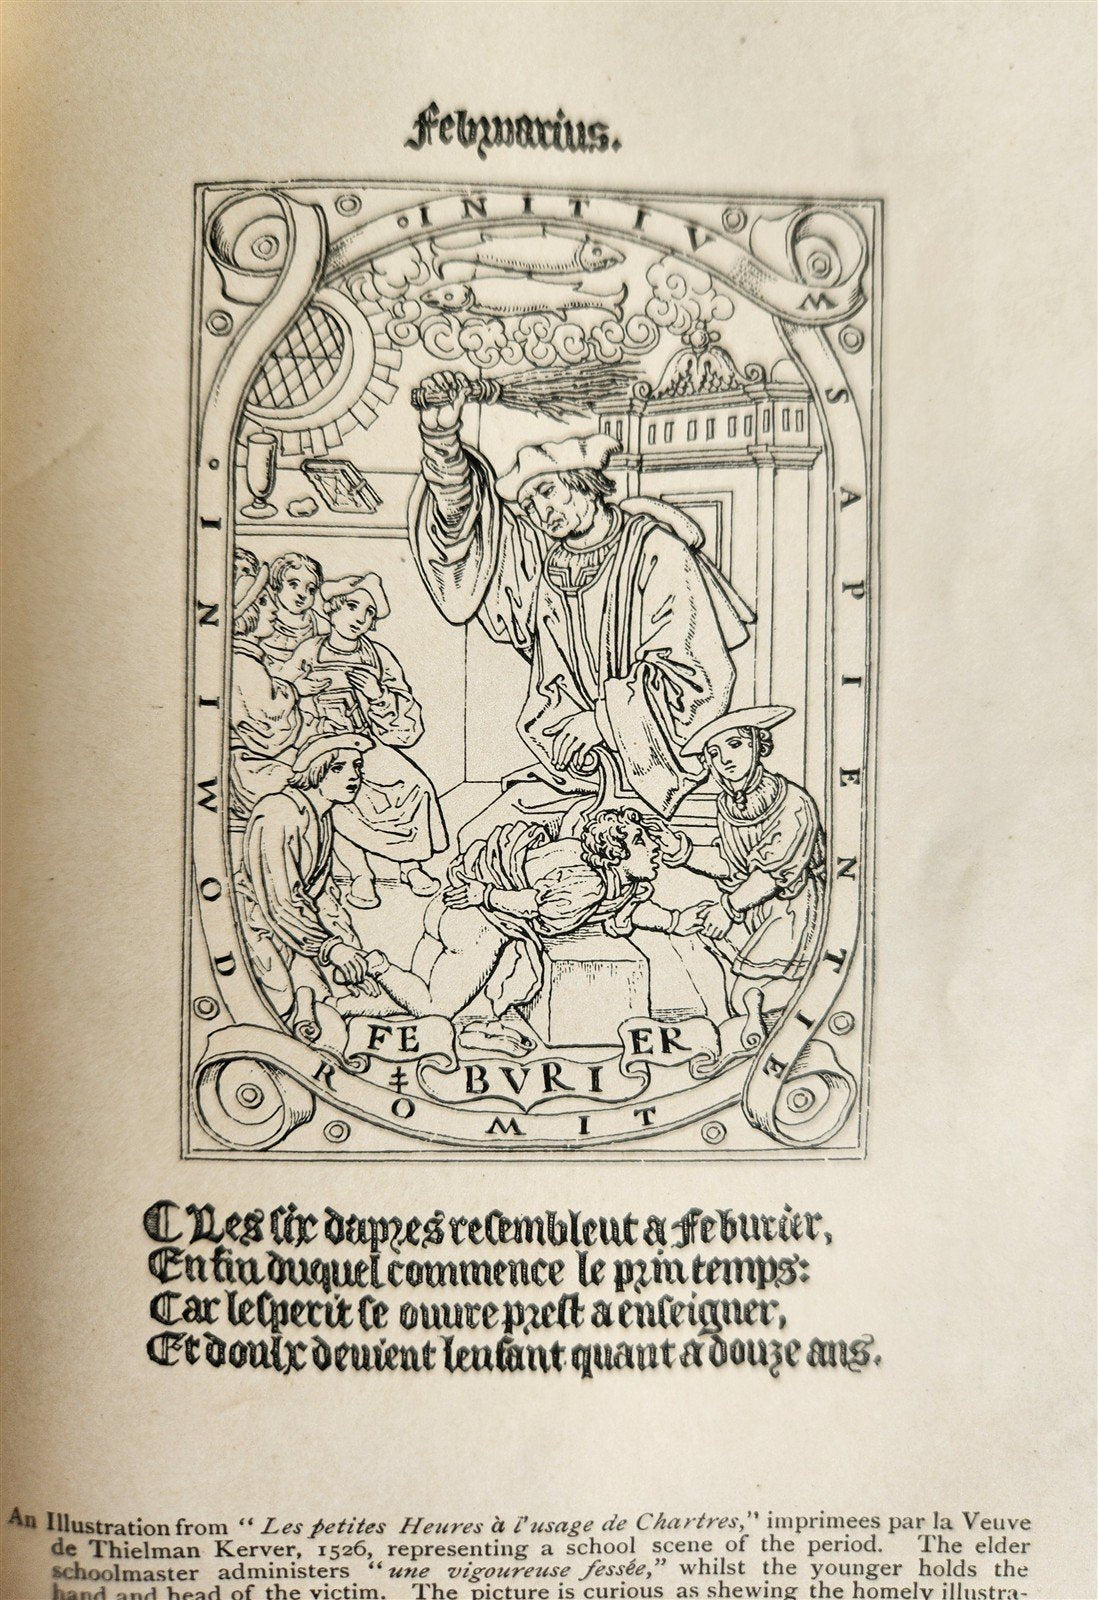 Februarius.
INITIVM SAPIENTIE
TIMOR DOMINI
FE
BVRI
ER
Les six dapres resemblent a Feburier,
En fin duquel commence le prin temps:
Car lesperit se ouure prest a enseigner,
Et doulx deuient lenfant quant a douze ans.
An Illustration from “ Les petites Heures à l'usage de Chartres,” imprimees par la Veuve
de Thielman Kerver, 1526, representing a school scene of the period. The elder
schoolmaster administers “une vigoureuse fessée,” whilst the younger holds the
hand and head of the victim. The picture is curious as shewing the homely illustra-